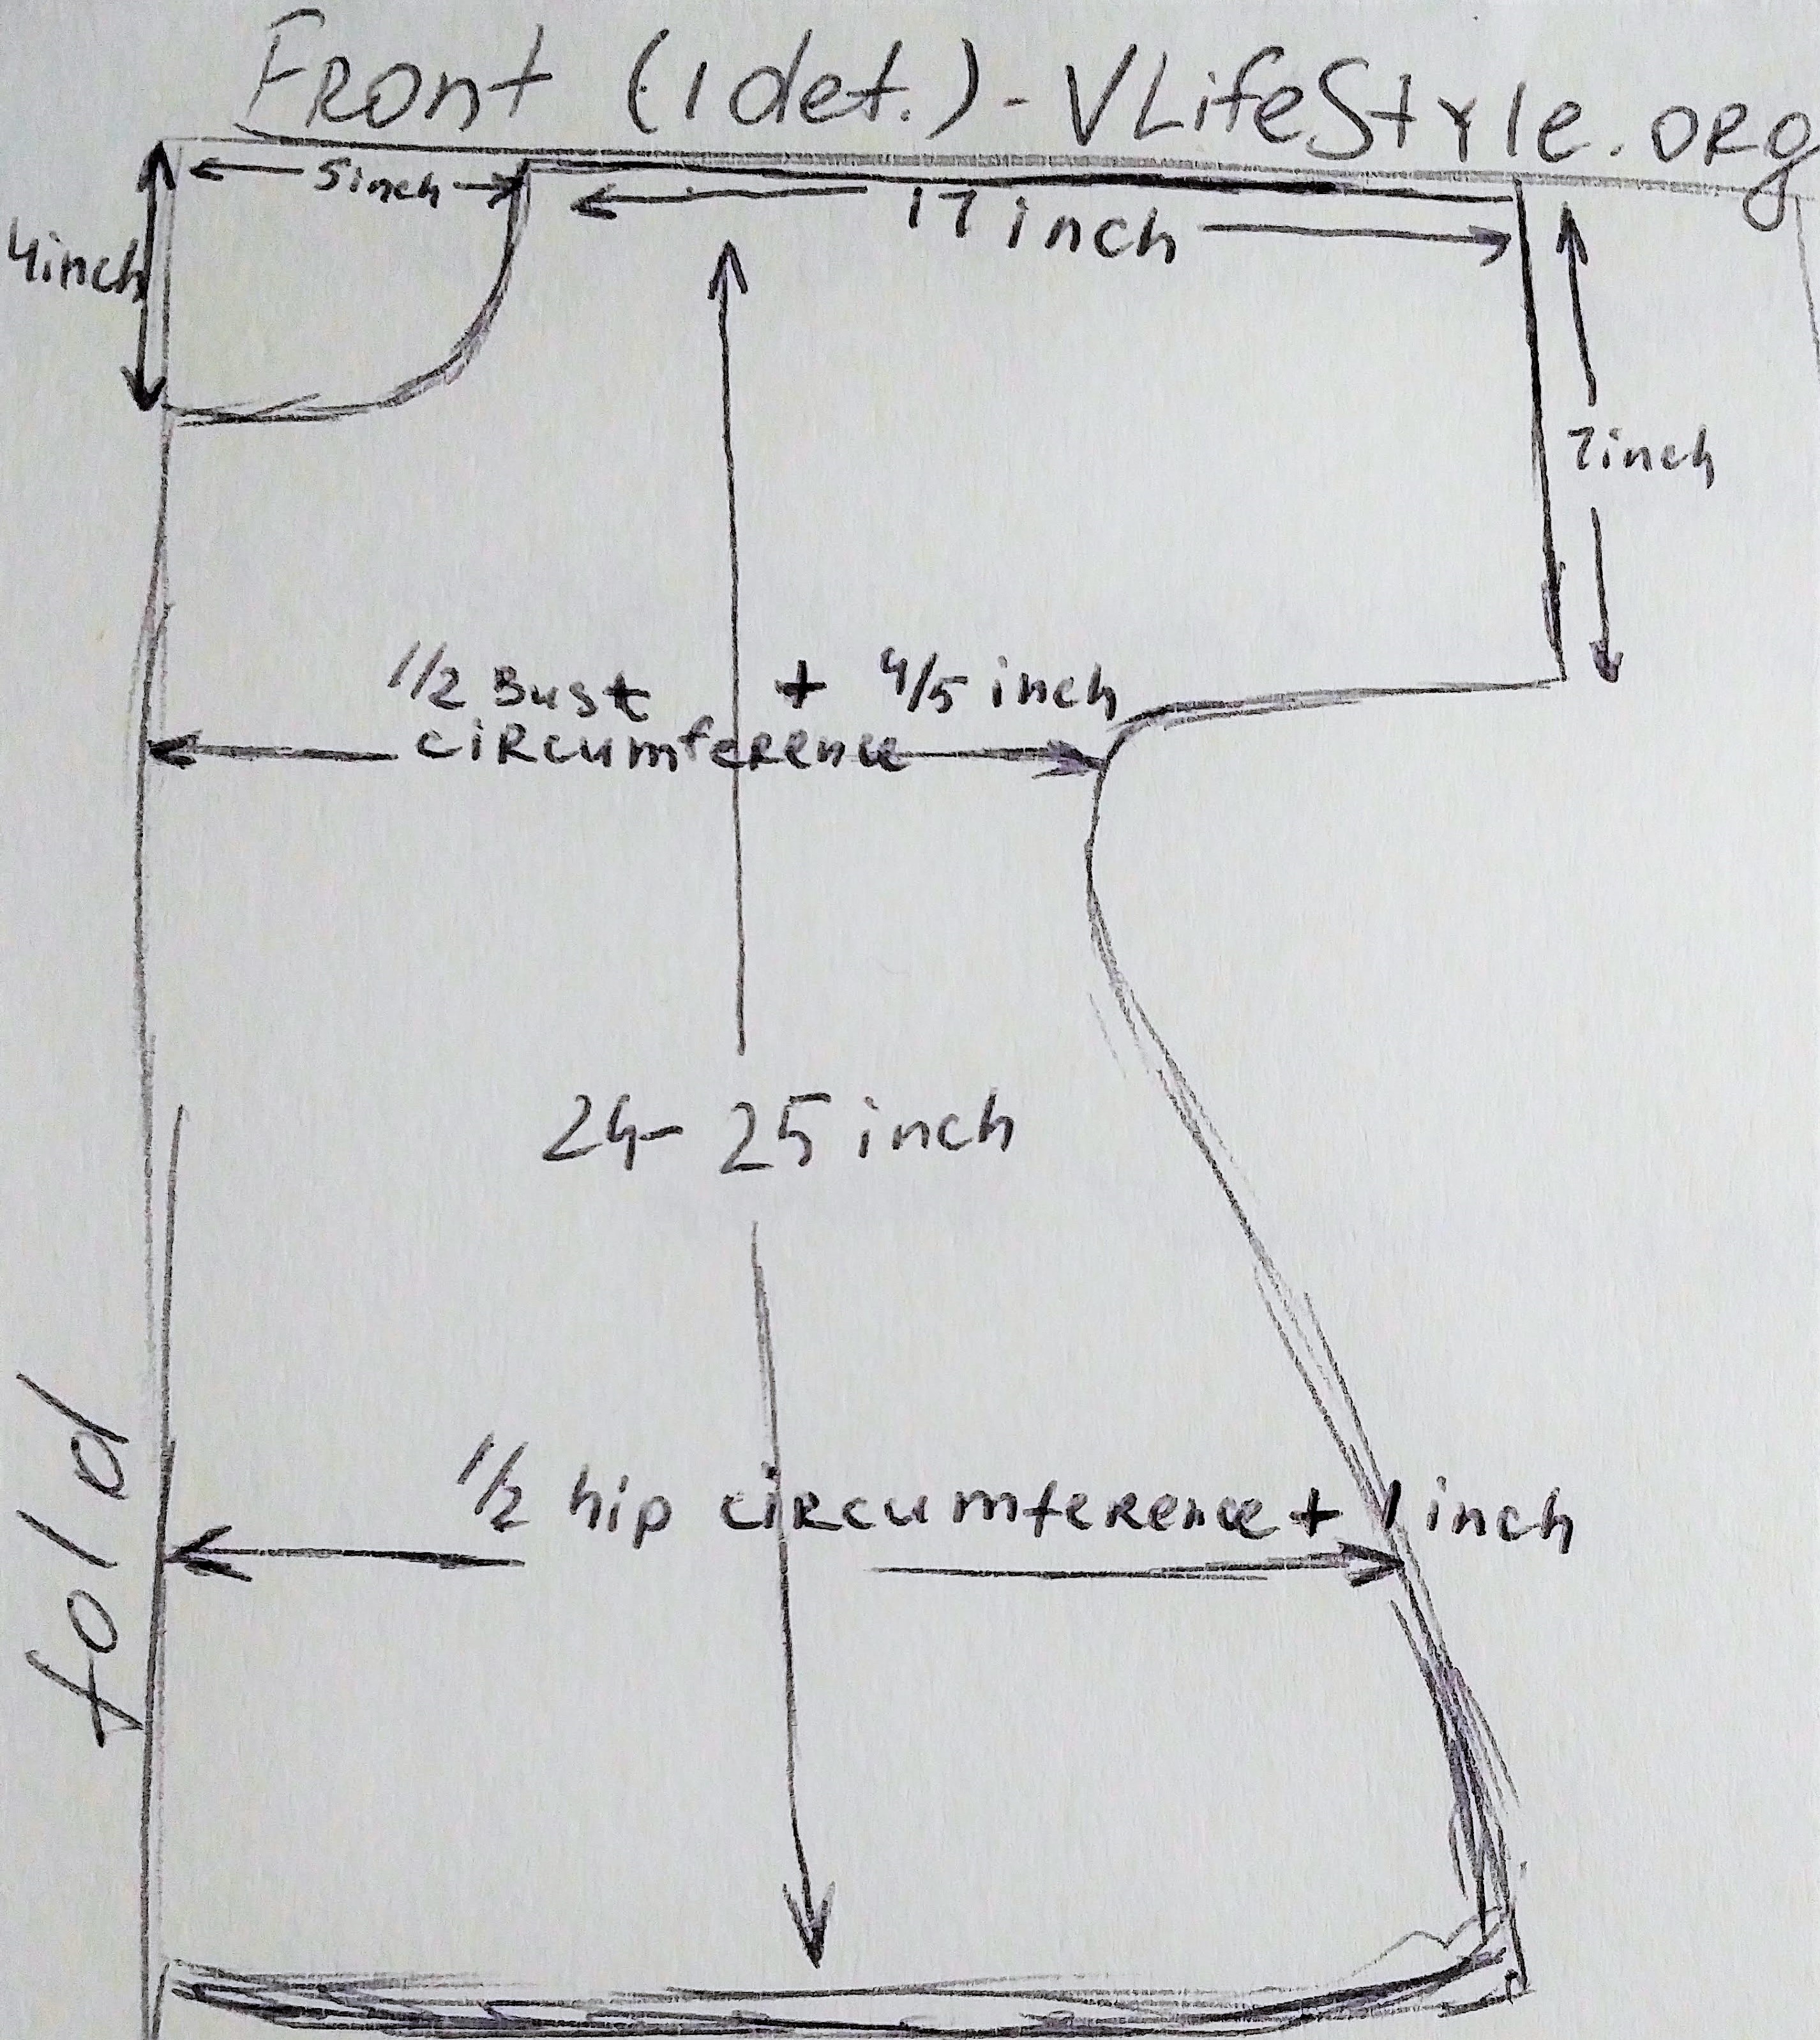 Front (1 det.) - VLifeStyle.org
5inch
17 inch
4inch
7inch
1/2 Bust + 4/5 inch
circumference
24- 25 inch
1/2 hip circumference + 1 inch
fold